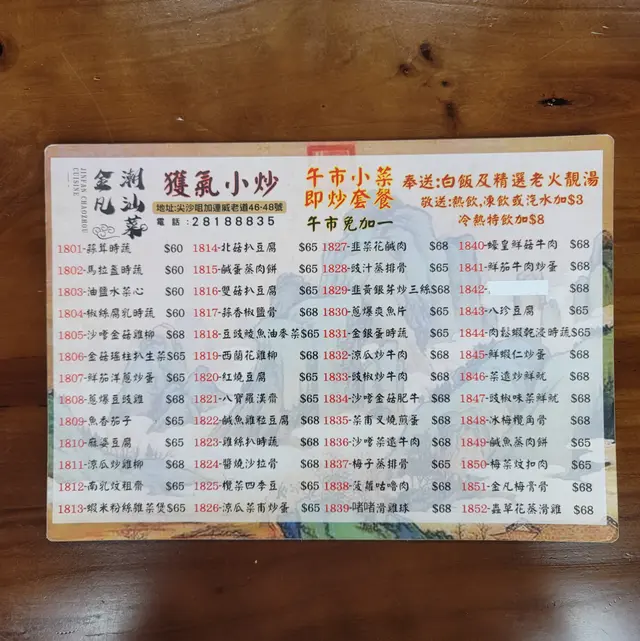 金凡
潮汕菜
JINFAN CHAOZHOU
CUISINE
獲氣小炒
地址:尖沙咀加連威老道46-48號
電話:28188835
午市小菜
即炒套餐
午市免加一
奉送:白飯及精選老火靚湯
敬送:熱飲,凍飲或汽水加$3
冷熱特飲加$8
1801-蒜茸時蔬 $60
1802-馬拉盞時蔬 $60
1803-油鹽水菜心 $60
1804-椒絲腐乳時蔬 $60
1805-沙嗲金菇雞柳 $68
1806-金菇瑤柱扒生菜$65
1807-鮮茄洋蔥炒蛋 $65
1808-蔥爆豆豉雞 $68
1809-魚香茄子 $65
1810-麻婆豆腐 $65
1811-涼瓜炒雞柳 $68
1812-南乳炆粗齋 $65
1813-蝦米粉絲雜菜煲$65
1814-北菇扒豆腐 $65
1815-鹹蛋蒸肉餅 $65
1816-雙菇扒豆腐 $65
1817-蒜香椒鹽骨 $68
1818-豆豉鯪魚油麥菜$65
1819-西蘭花雞柳 $68
1820-紅燒豆腐 $65
1821-八寶羅漢齋 $65
1822-鹹魚雞粒豆腐 $68
1823-雞絲扒時蔬 $68
1824-醬燒沙拉骨 $68
1825-欖菜四季豆 $65
1826-涼瓜菜甫炒蛋 $65
1827-韭菜花鹹肉 $68
1828-豉汁蒸排骨 $65
1829-韭黃銀芽炒三絲$68
1830-蔥爆爽魚片 $65
1831-金銀蛋時蔬 $65
1832-涼瓜炒牛肉 $68
1833-豉椒炒牛肉 $68
1834-沙嗲金菇肥牛 $68
1835-菜甫叉燒煎蛋 $68
1836-沙嗲菜遠牛肉 $68
1837-梅子蒸排骨 $65
1838-菠蘿咕嚕肉 $68
1839-啫啫滑雞球 $68
1840-蠔皇鮮菇牛肉 $68
1841-鮮茄牛肉炒蛋 $68
1842- $68
1843-八珍豆腐 $65
1844-肉鬆蝦乾浸時蔬$65
1845-鮮蝦仁炒蛋 $68
1846-菜遠炒鮮魷 $68
1847-豉椒味菜鮮魷 $68
1848-冰梅欖角骨 $68
1849-鹹魚蒸肉餅 $65
1850-梅菜炆扣肉 $65
1851-金凡梅香骨 $68
1852-蟲草花蒸滑雞 $68